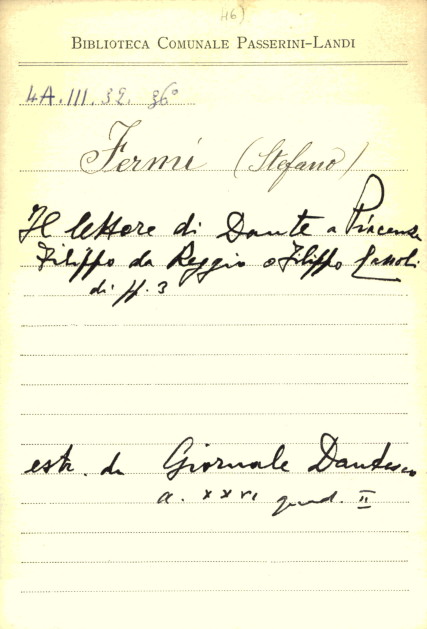 46)
BIBLIOTECA COMUNALE PASSERINI-LANDI
4A.III.32. 36°
Fermi (Stefano)
Il lettore di Dante a Piacenza
Filippo da Reggio o Filippo Cassoli
di pp. 3
estr. da Giornale Dantesco
a. XXVI quad. II